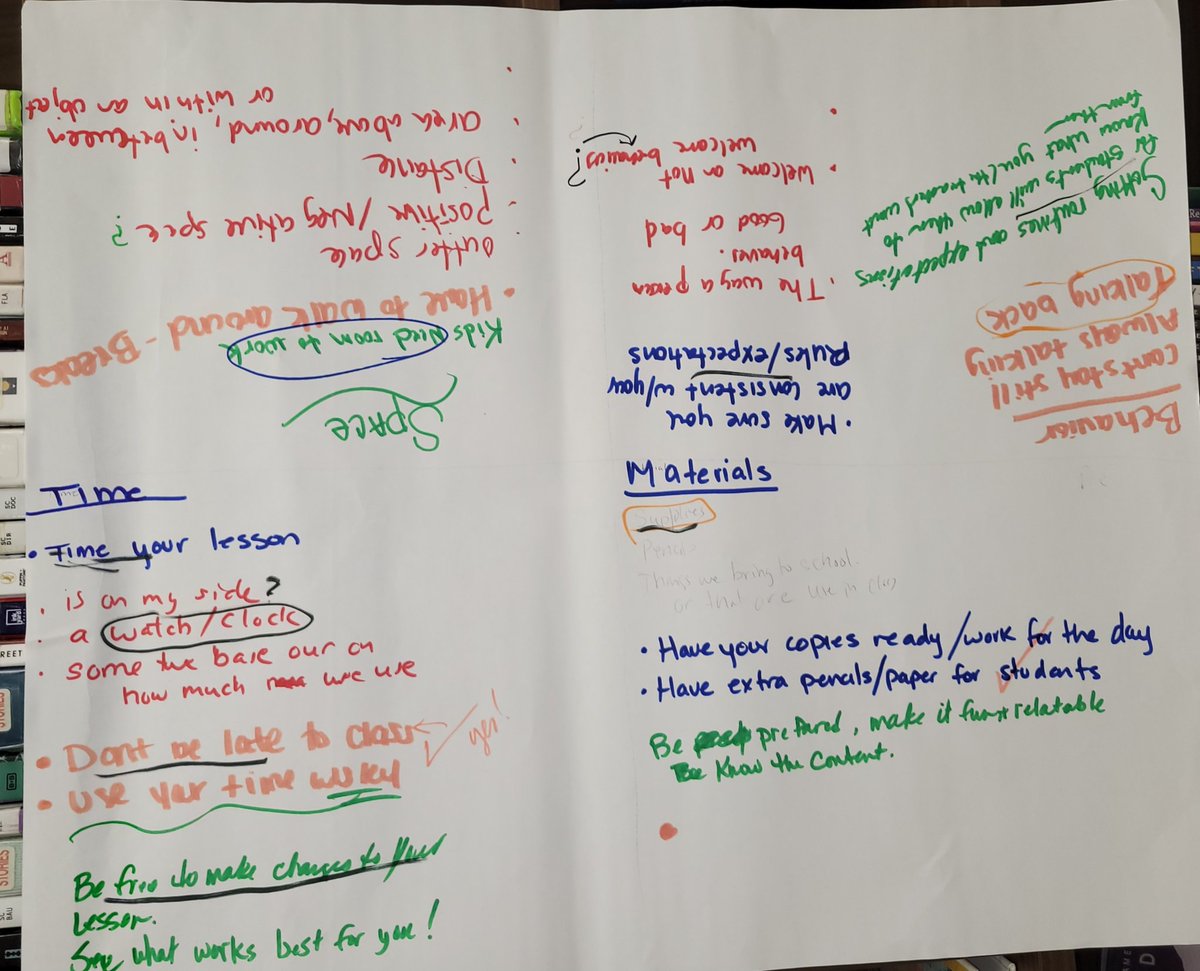 Time
• Time your lesson
• is on my side?
• a watch/clock
• some the base our on
how much we use
• Dont be late to class
yes!
• use your time wisley
Be free to make changes to your
Lesson.
See what works best for you!
Materials
Supplies
Pencils
Things we bring to school.
or that are use in class
• Have your copies ready/work for the day
• Have extra pencils/paper for students
Be prepared, make it fun + relatable
Know the Content.
Behavior
cant stay still
Always talking
Talking back
Setting routines and expectations
for students will allow them to
know what you (the teacher) want
from them
• Make sure you
are consistent w/you
Rules/expectations
• The way a person
behaves.
Good or bad
• Welcome or not
welcome behavios?
Space
Kids need room to work
• Have to walk around - Breaks
outter space
• Positive/Negative spce?
• Distance
• area above, around, inbetween
or within an object